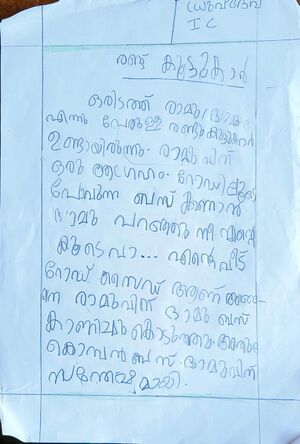 ധ്രുവദേവ്
I C
രണ്ട് കൂട്ടുകാർ
ഒരിടത്ത് രാമു ദാമു
എന്നു പേരുള്ള രണ്ടു കൂട്ടുകാർ
ഉണ്ടായിരുന്നു. രാമുവിന്
ഒരു ആഗ്രഹം. റോഡിലൂടെ
പോവുന്ന ബസ് കാണാൻ
ദാമു പറഞ്ഞു നീ എന്റെ
കൂടെ വാ... എന്റെ വീട്
റോഡ് സൈഡ് ആണ് അങ്ങ
നെ രാമുവിന് ദാമു ബസ്
കാണിച്ചു കൊടുത്തു.
കൊമ്പൻ ബസ്. രാമുവിന്
സന്തോഷമായി.